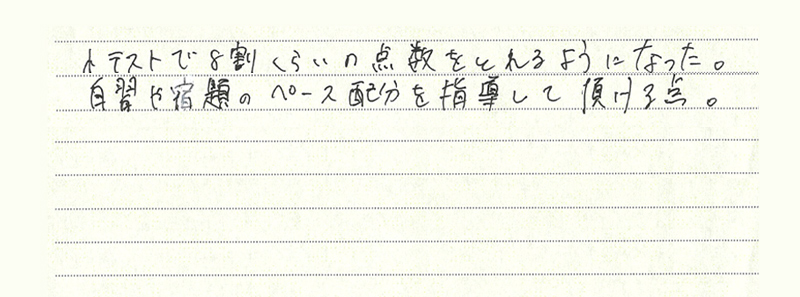 小テストで8割くらいの点数をとれるようになった。
自習や宿題のペース配分を指導して頂ける点。